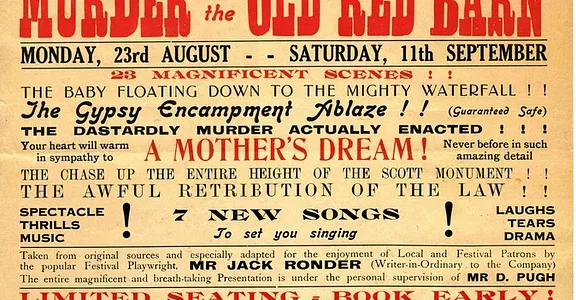 MURDER the OLD RED BARN
MONDAY, 23rd AUGUST - - SATURDAY, 11th SEPTEMBER
23 MAGNIFICENT SCENES ! !
THE BABY FLOATING DOWN TO THE MIGHTY WATERFALL ! !
The Gypsy Encampment Ablaze ! ! (Guaranteed Safe)
THE DASTARDLY MURDER ACTUALLY ENACTED ! ! !
Your heart will warm
in sympathy to
A MOTHER'S DREAM !
Never before in such
amazing detail
THE CHASE UP THE ENTIRE HEIGHT OF THE SCOTT MONUMENT ! !
THE AWFUL RETRIBUTION OF THE LAW ! !
SPECTACLE
THRILLS
MUSIC
!
7 NEW SONGS
To set you singing
!
LAUGHS
TEARS
DRAMA
Taken from original sources and especially adapted for the enjoyment of Local and Festival Patrons by
the popular Festival Playwright, MR JACK RONDER (Writer-in-Ordinary to the Company)
The entire magnificent and breath-taking Presentation is under the personal supervision of MR D. PUGH
LIMITED SEATING - BOOK EARLY !